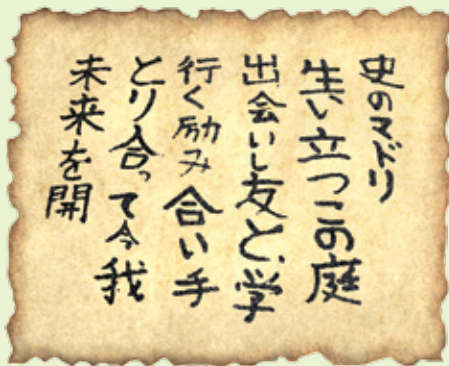 史のマドリ
生い立つこの庭
出会いし友と、学
行く励み合い手
とり合って今我
未来を開